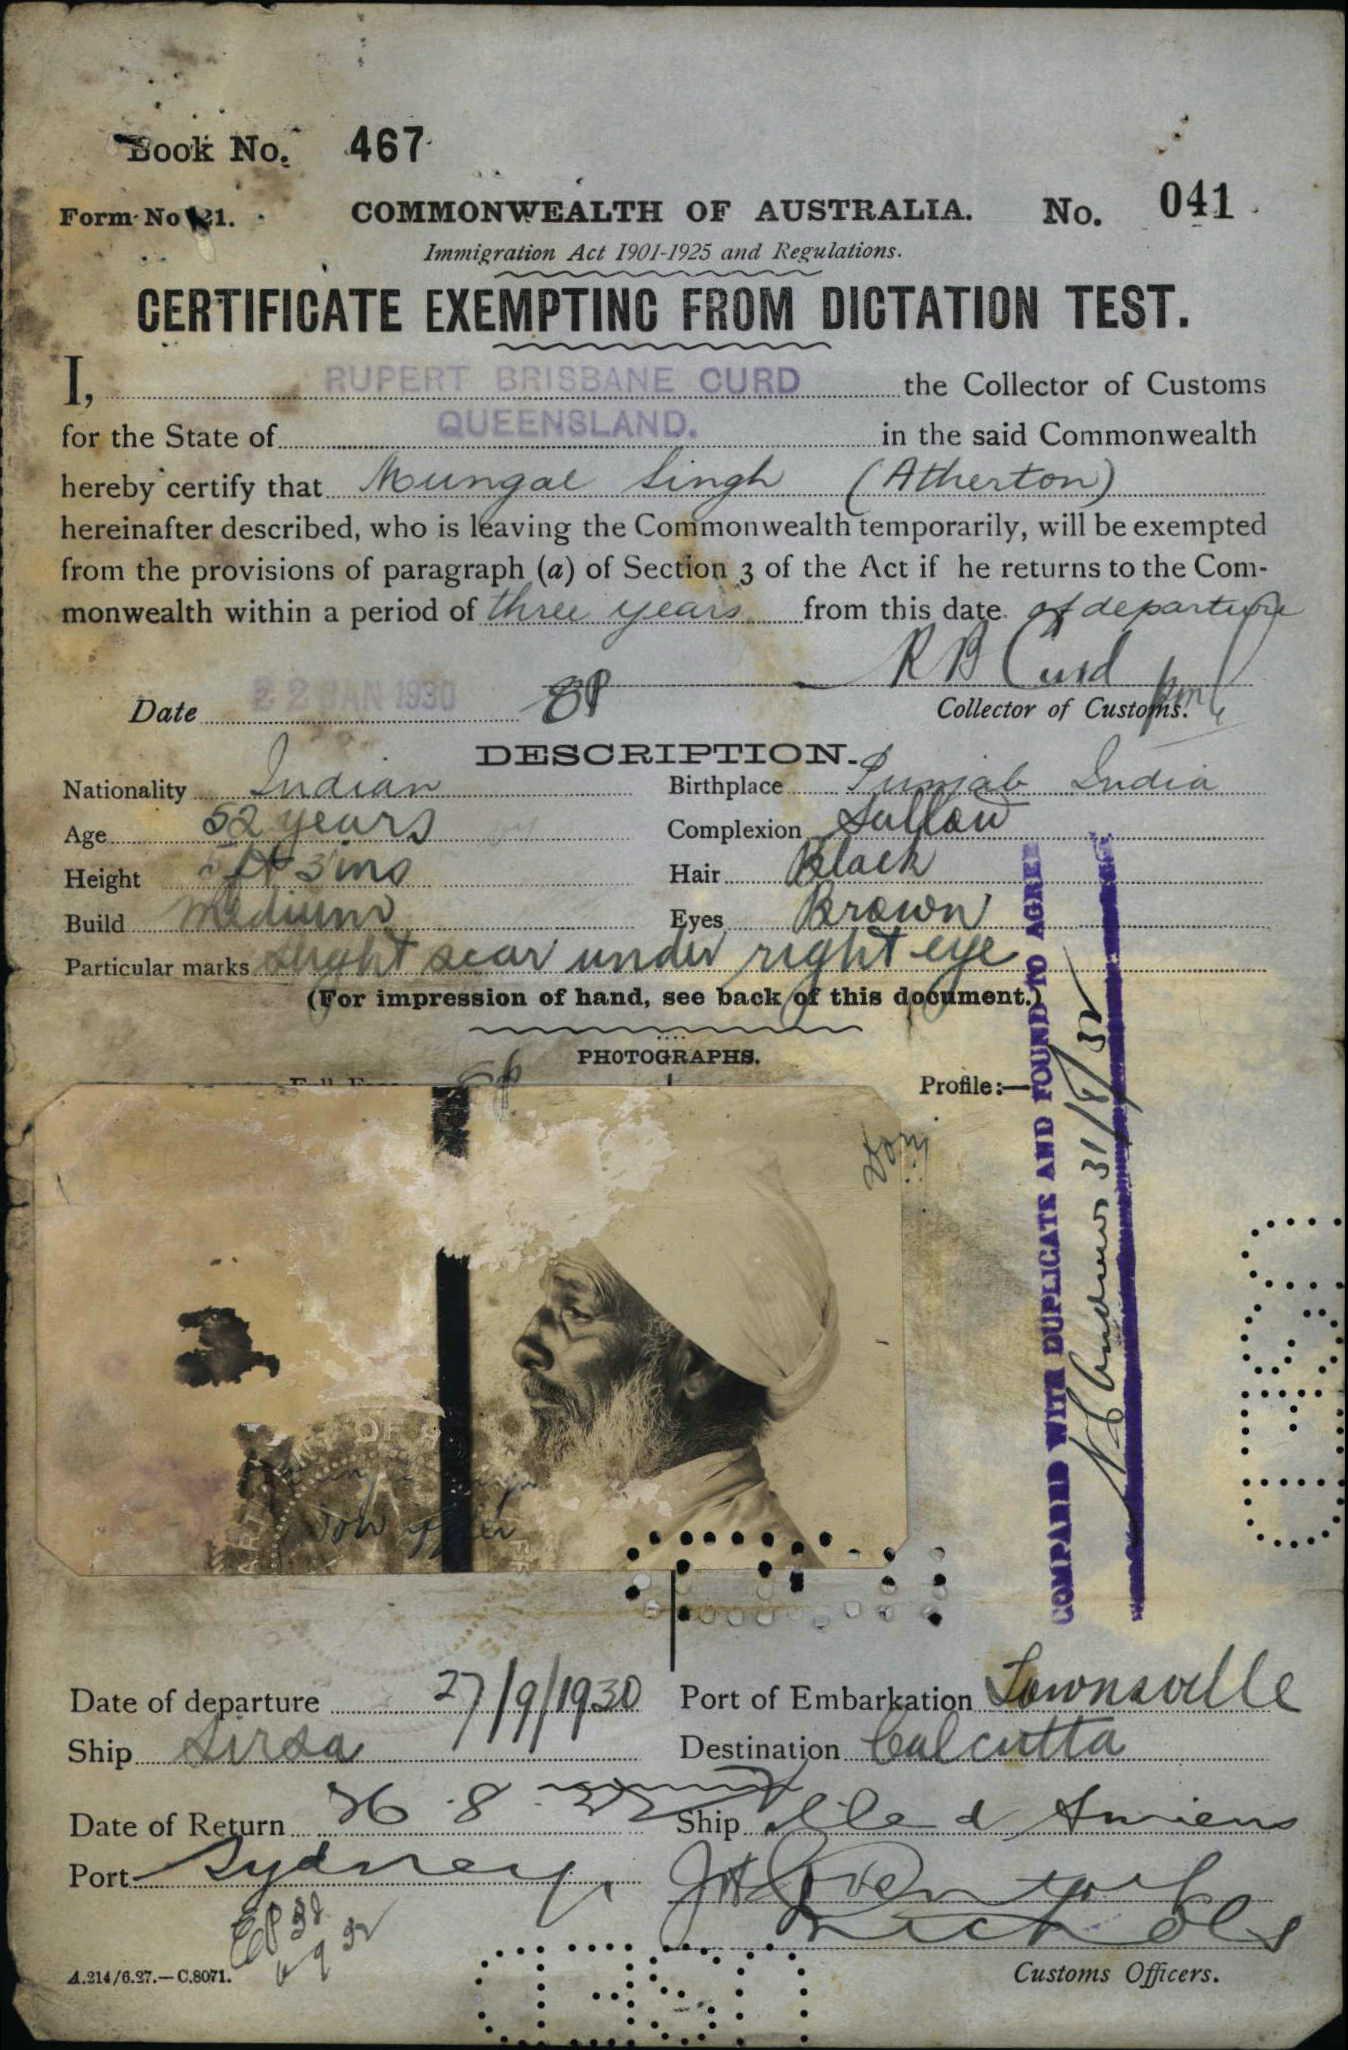 Book No. 467
Form No 21. COMMONWEALTH OF AUSTRALIA. No. 041
Immigration Act 1901-1925 and Regulations.
CERTIFICATE EXEMPTING FROM DICTATION TEST.
I, RUPERT BRISBANE CURD the Collector of Customs
for the State of QUEENSLAND. in the said Commonwealth
hereby certify that Mungal Singh (Atherton)
hereinafter described, who is leaving the Commonwealth temporarily, will be exempted
from the provisions of paragraph (a) of Section 3 of the Act if he returns to the Com-
monwealth within a period of three years from this date of departure
R B Curd
Date 22 JAN 1930 Collector of Customs.
DESCRIPTION.
Nationality Indian Birthplace Punjab India
Age 52 years Complexion Sallow
Height 5 ft 3 ins Hair Black
Build Medium Eyes Brown
Particular marks slight scar under right eye
(For impression of hand, see back of this document.)
PHOTOGRAPHS.
Full Face Profile:—
COMPARED WITH DUPLICATE AND FOUND TO AGREE
Andrews 31/8/32
Date of departure 27/9/1930 Port of Embarkation Townsville
Ship Sirsa Destination Calcutta
Date of Return 26.8.32 Ship Ville d Amiens
Port Sydney
Nichols
6 9 32
A.214/6.27.—C.8071. Customs Officers.